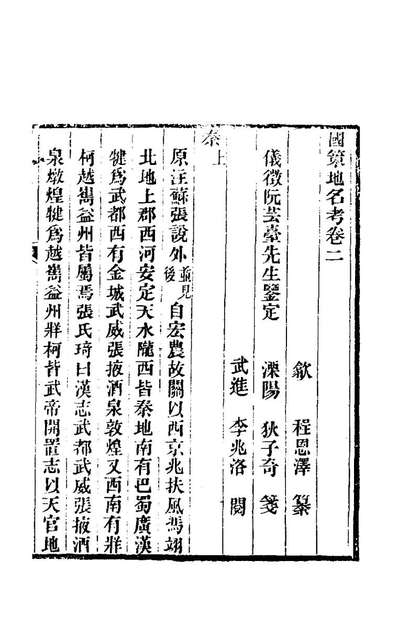 國策地名考卷二
歙　程恩澤　纂
儀徵阮芸臺先生鑒定　溧陽　狄子奇　箋
武進　李兆洛　閱
秦上
原注蘇張說外並見後自宏農故關以西京兆扶風馮翊
北地上郡西河安定天水隴西皆秦地南有巴蜀廣漢
犍爲武都西有金城武威張掖酒泉敦煌又西南有牂
柯越巂益州皆屬焉張氏琦曰漢志武都武威張掖酒
泉燉煌犍爲越巂益州牂柯皆武帝開置志以天官地